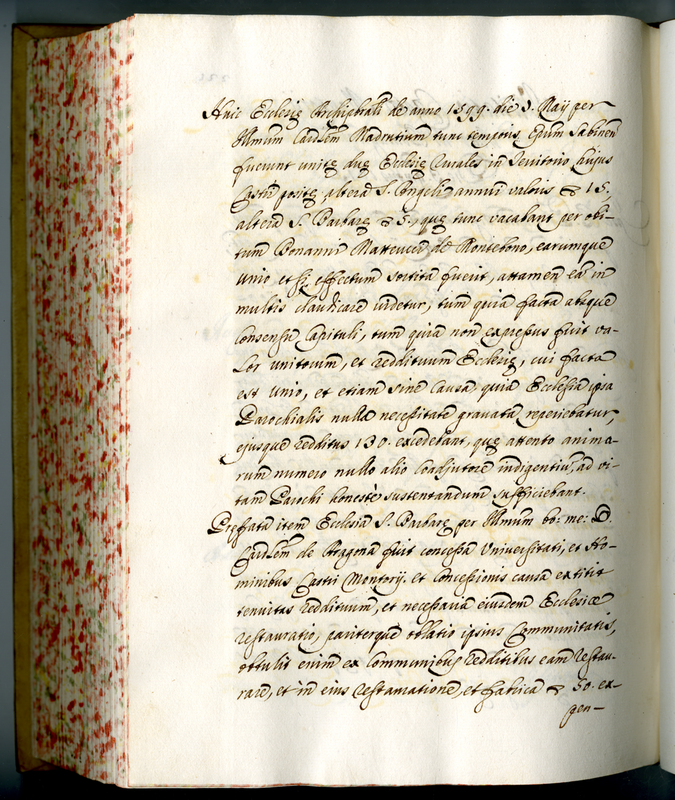 Huic Ecclesię Archipbrāli de anno 1599. die 3. Maij per
Illmum Cardlem Madrutium tunc temporis Epum Sabinen
fuerunt unitę duę Ecclesię rurales in Territorio hujus
Castri positę, altera S. Angeli annui valoris 15,
altera S. Barbarę 5, quę tunc vacabant per obi-
tum Bonanni Matteucci de Montebono, earumque
unio etsi effectum sortita fuerit, attamen ea in
multis claudicare videtur, tum quia facta absque
Consensu Capituli, tum quia non expressus fuit va-
lor unitorum, et reddituum Ecclesię, cui facta
est unio, et etiam sine causa, quia Ecclesia ipsa
Parochialis nulla necessitate gravata reperiebatur,
ejusque redditus 130. excedebant, quę attento anima-
rum numero nullo alio Coadjutore indigentiū, ad vi-
tam Parochi honestè sustentandum sufficiebant.
Pręfata item Ecclesia S. Barbarę per Illmum bo: me: D.
Cardlem de Aragona fuit concessa Universitati, et Ho-
minibus Castri Montorij. et Concessionis causa extitit
tenuitas reddituum, et necessaria eiusdem Ecclesiæ
restauratio, pariterque oblatio ipsius Communitatis,
obtulit enim ex Communibus redditibus eam restau-
rare, et in eius restauratione, et fabrica 50. ex-
pen-